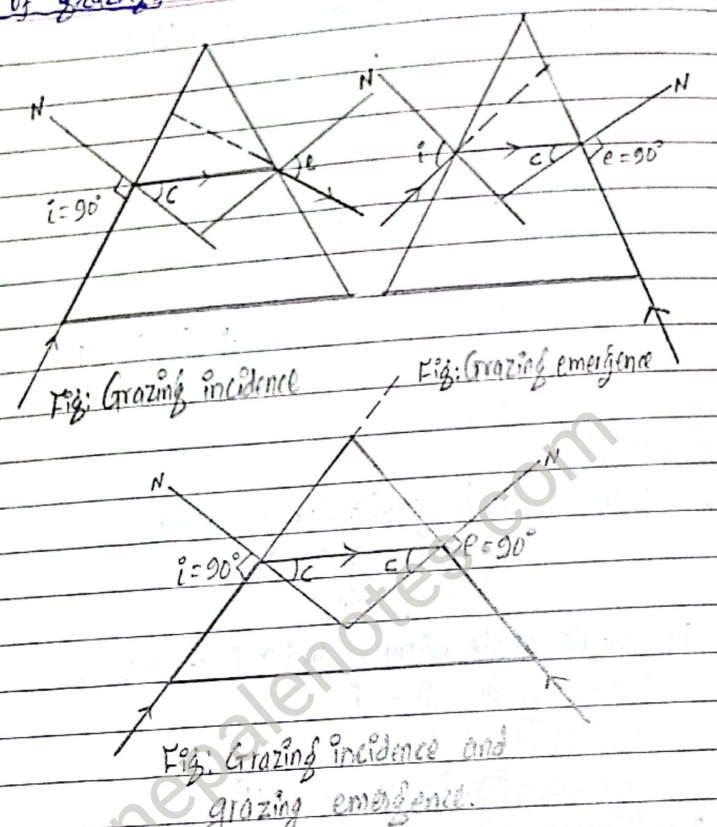 of grazing
N
i=90°
c
e
N
i
c
e=90°
N
Fig: Grazing incidence
Fig: Grazing emergence
N
i=90°
c
c
e=90°
N
Fig. Grazing incidence and
grazing emergence.
nepalenotes.com